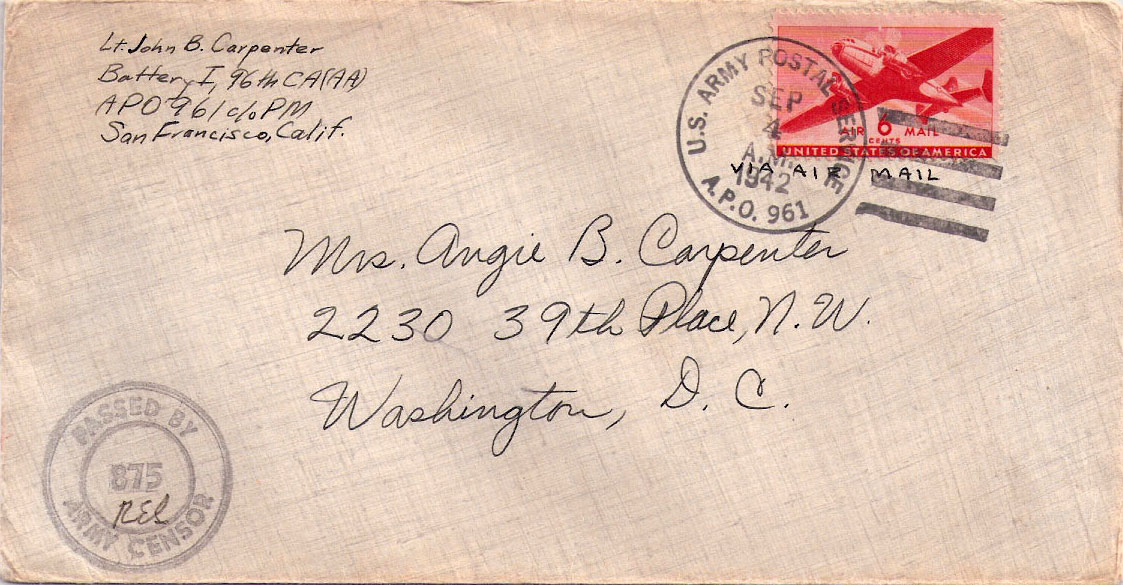 Lt. John B. Carpenter
Battery I, 96th CA(AA)
APO 961 c/o PM
San Francisco, Calif.
U.S. ARMY POSTAL SERVICE
SEP
4
A.M.
1942
A.P.O. 961
AIR 6 MAIL
CENTS
UNITED STATES OF AMERICA
VIA AIR MAIL
Mrs. Angie B. Carpenter
2230 39th Place, N.W.
Washington, D. C.
PASSED BY
875
REL
ARMY CENSOR